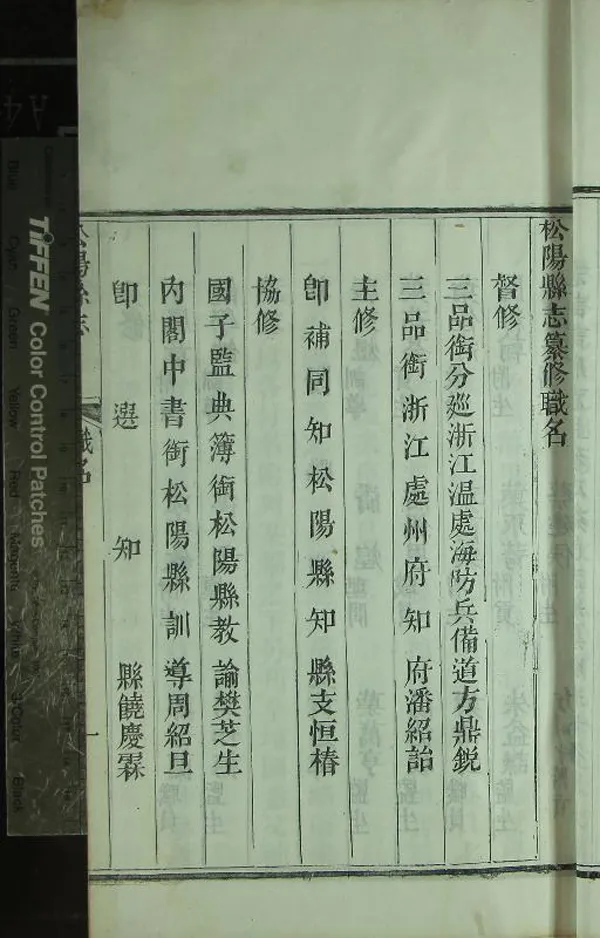 松陽縣志纂修職名
督修
三品銜分巡浙江温處海防兵備道方鼎銳
三品銜浙江處州府知府潘紹詒
主修
卽補同知松陽縣知縣支恒椿
協修
國子監典簿銜松陽縣教諭樊芝生
內閣中書銜松陽縣訓導周紹旦
卽選知縣饒慶霖
陽縣志
職名
一
TIFFEN Color Control Patches
Blue
Cyan
Green
Yellow
Red
Magenta
White
3/Color
Black